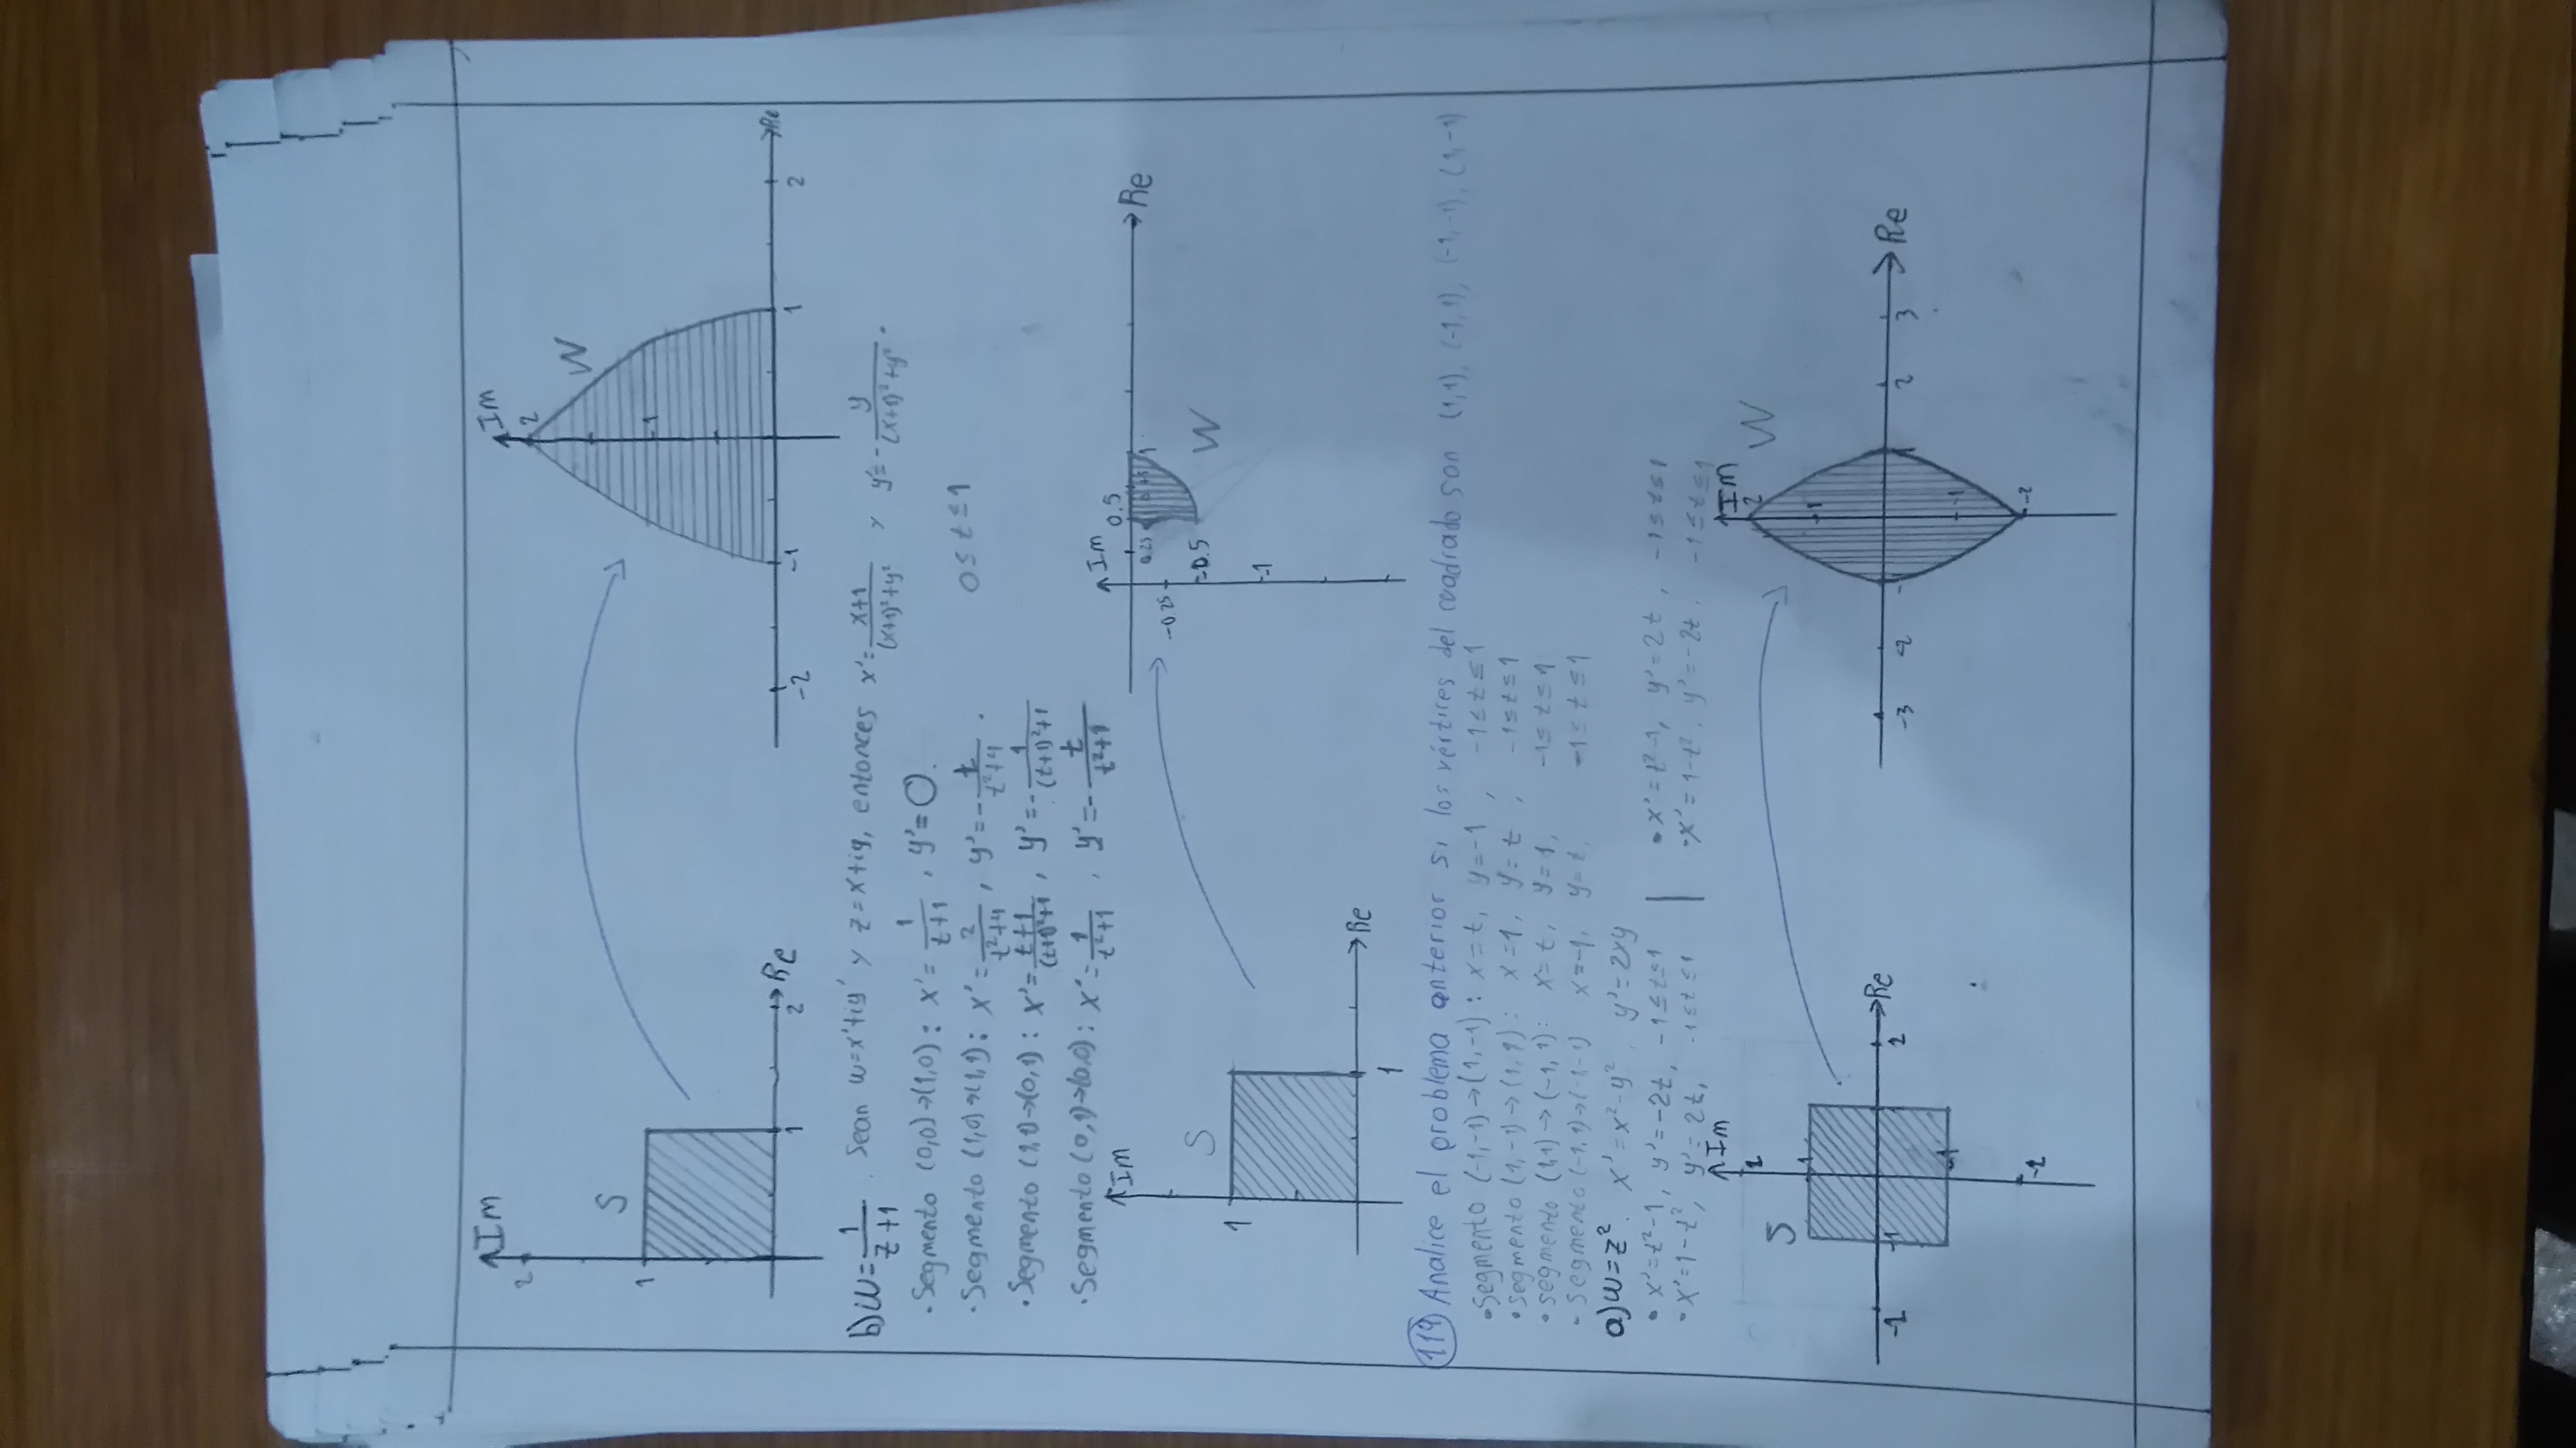 Im
2
S
1
1
2
Re
Im
2
W
1
-2
-1
1
2
Re
b) w=1/(z+1). Sean w=x'+iy' y z=x+iy, entonces x'=(x+1)/((x+1)²+y²) y y'=-y/((x+1)²+y²).
·Segmento (0,0)→(1,0): x'=1/(t+1), y'=0.
·Segmento (1,0)→(1,1): x'=2/(t²+4), y'=-t/(t²+4). 0≤t≤1
·Segmento (1,1)→(0,1): x'=(t+1)/((t+1)²+1), y'=-1/((t+1)²+1)
·Segmento (0,1)→(0,0): x'=1/(t²+1), y'=-t/(t²+1)
Im
S
1
1
Re
Im
0.5
0.25
1
Re
-0.25
-0.5
W
-1
119 Analice el problema anterior si los vértices del cuadrado son (1,1), (-1,1), (-1,-1), (1,-1)
•Segmento (-1,-1)→(1,-1): x=t, y=-1, -1≤t≤1
•segmento (1,-1)→(1,1): x=1, y=t, -1≤t≤1
•segmento (1,1)→(-1,1): x=t, y=1, -1≤t≤1
-Segmento (-1,1)→(-1,-1) x=-1, y=t, -1≤t≤1
a) w=z². x'=x²-y², y'=2xy
• x'=t²-1, y'=-2t, -1≤t≤1 | • x'=t²-1, y'=2t, -1≤t≤1
•x'=1-t², y'=2t, -1≤t≤1 | •x'=1-t², y'=-2t, -1≤t≤1
Im
2
S
1
-2
-1
1
2
Re
-1
-2
Im
2
W
1
-3
-2
2
3
Re
-1
-2